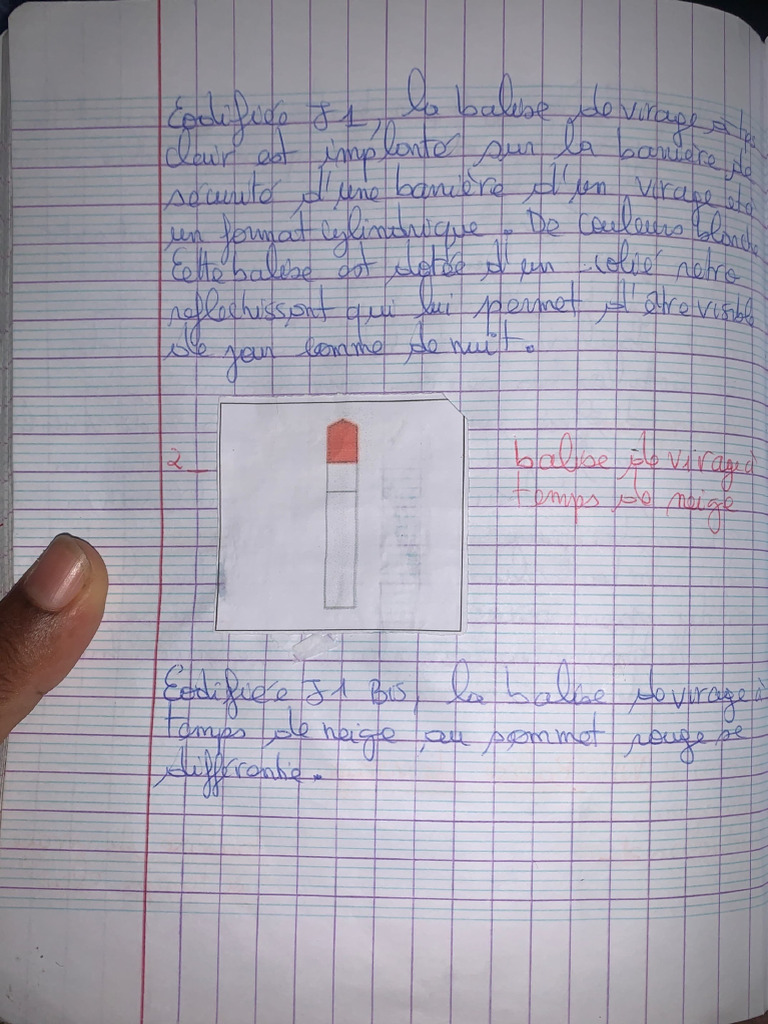 Codifiée J1, la balise de virage à
clair est implanté sur la banière de
sécurité d'une banière d'un virage et a
un format cylindrique. De couleurs blanche
Cette balise est dotée d'un colié rétro
reflechissant qui lui permet d'être visible
de jour comme de nuit.
2_ balise de virage à
temps de neige
Codifiée J1 Bis, la balise de virage à
temps de neige au sommet rouge se
différentie.